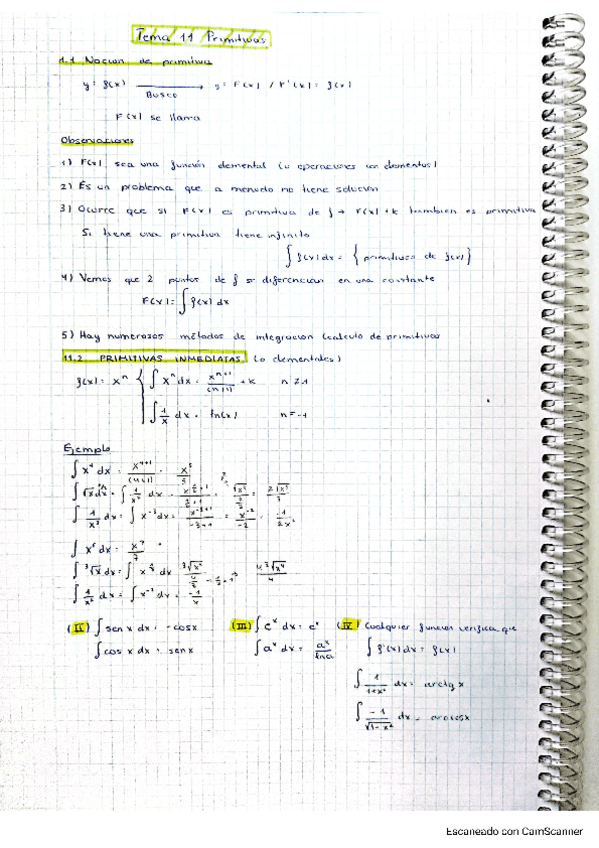 Tema 11 Primitivas
1.1 Nocion de primitiva
y = f(x) → Busco y = F(x) / F'(x) = f(x)
F(x) se llama
Observaciones
1) F(x) sea una función elemental (u operaciones con elementos)
2) Es un problema que a menudo no tiene solución
3) Ocurre que si F(x) es primitiva de f → F(x) + k tambien es primitiva
Si tiene una primitiva tiene infinito
∫ f(x) dx = { primitivas de f(x) }
4) Vemos que 2 puntos de f se diferencian en una constante
F(x) = ∫ f(x) dx
5) Hay numerosos métodos de integracion (calculo de primitivas
11.2 PRIMITIVAS INMEDIATAS (o elementales)
f(x) = x^n { ∫ x^n dx = x^(n+1)/(n+1) + k
∫ 1/x dx = ln(x) n = -1
Ejemplo
∫ x^4 dx = x^(4+1)/(4+1) = x^5/5
∫ 1/x^3 dx = ∫ x^-3 dx = x^(-3+1)/(-3+1) = x^-2/-2
∫ x^6 dx = x^7/7
∫ 1/x^2 dx = ∫ x^-2 dx = -1/x
(II) ∫ sen x dx = -cosx (III) ∫ e^x dx = e^x (IV) Cualquier funcion verifica que
∫ cos x dx = sen x ∫ a^x dx = a^x/lna ∫ f'(x) dx = f(x)
∫ 1/(1+x^2) dx = arctg x
∫ -1/√(1-x^2) dx = arcosx
Escaneado con CamScanner